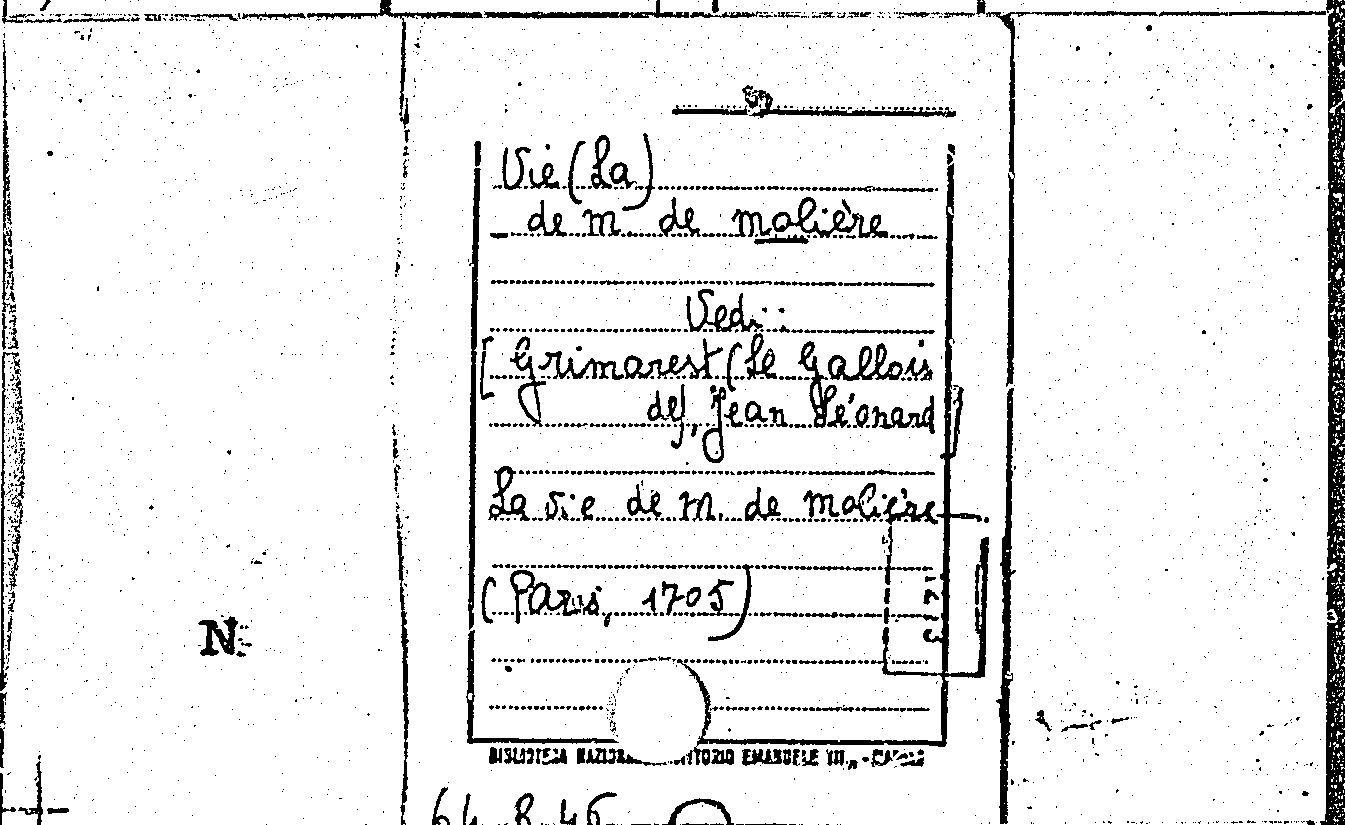 Vie (La)
_ de M de Molière
Vedi:
[Grimarest (Le Gallois
de), Jean Léonard]
La vie de M. de Molière.
(Paris, 1705)
N.
BIBLIOTECA NAZIONA TTORIO EMANUELE III„ - NAPOLI
64 8 46